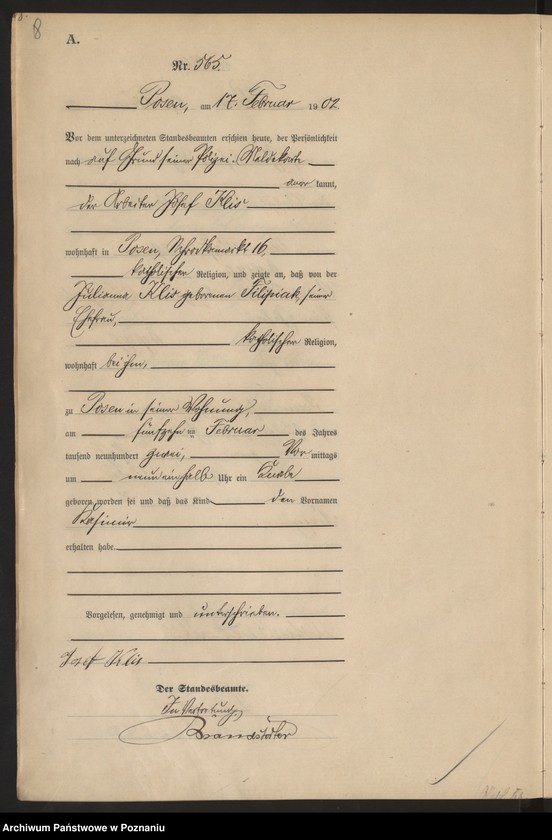 8
A.
Nr. 565.
Posen, am 17. Februar 1902
Vor dem unterzeichneten Standesbeamten erschien heute, der Persönlichkeit
nach auf Grund seiner Polizei-Meldekarte
kannt,
der Arbeiter Josef Klis
wohnhaft in Posen, Schrodkamarkt 16,
katholischer Religion, und zeigte an, daß von der
Julianna Klis geborenen Filipiak, seiner
Ehefrau,
katholischer Religion,
wohnhaft bei ihm,
zu Posen in seiner Wohnung,
am fünfzehnten Februar des Jahres
tausend neunhundert zwei, Vor mittags
um neuneinhalb Uhr ein Knabe
geboren worden sei und daß das Kind den Vornamen
Kasimir
erhalten habe.
Vorgelesen, genehmigt und unterschrieben.
Jozef Klis
Der Standesbeamte.
In Vertretung
Brandstäter
Archiwum Państwowe w Poznaniu